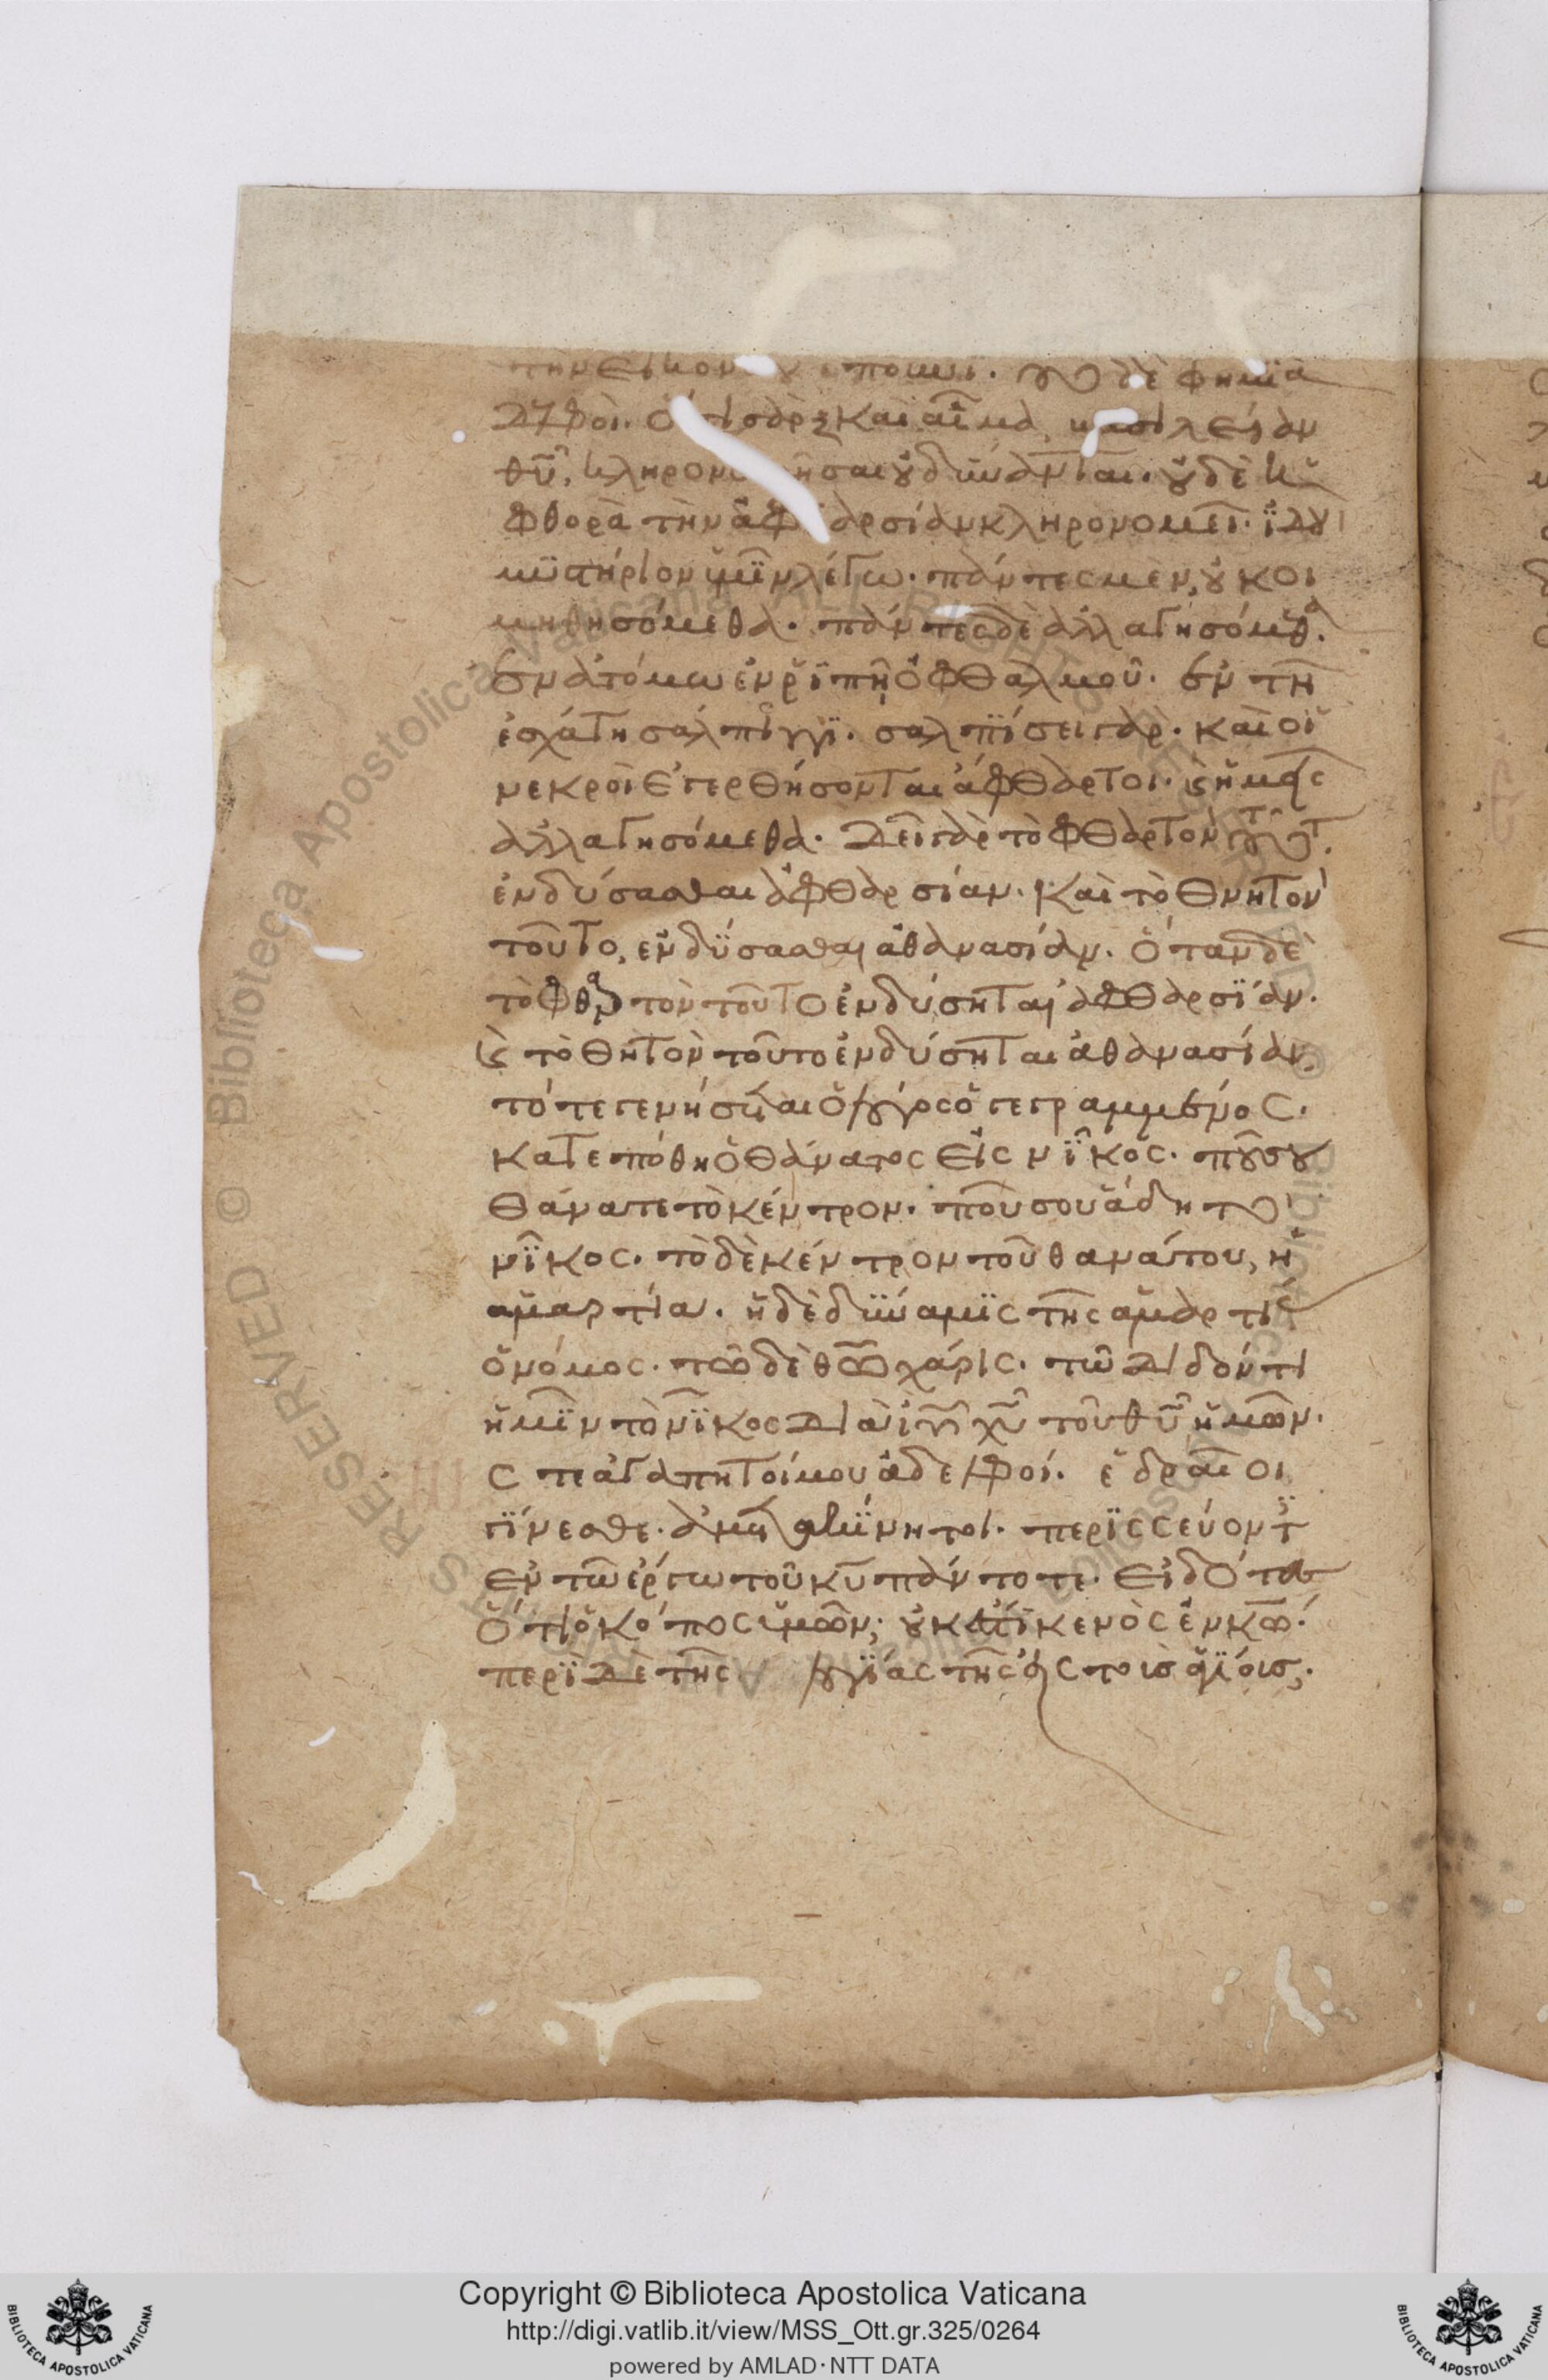 τὴν εἰκον τοῦ ἐπουνί. τοῦτο δὲ φημϊ ἀ
δελφοὶ. ὅτι σὰρξ καὶ αἷμα, βασιλείαν
θῦ, κληρονομῆσαι οὐ δϋνανται. οὐδὲ ἡ
φθορὰ τὴν ἀφθαρσίαν κληρονομεῖ. ἰδοὺ
μϋστήριον ὑμῖν λέγω. πάντες μὲν, οὐ κοι
μηθησόμεθα. πάντες δὲ ἀλλαγησόμεθα.
ἐν ἀτόμω ἐν ῥϊπῆ ὀφθαλμοῦ. ἐν τῆ
ἐσχάτη σάλπιγγϊ. σαλπϊσει γὰρ. καὶ οἱ
νεκροὶ ἐγερθήσονται ἄφθαρτοι. κ ἡμεῖς
ἀλλαγησόμεθα. δεῖ γὰρ τὸ φθαρτὸν τοῦτ
ἐνδύσασθαι ἀφθαρσίαν. καὶ τὸ θνητὸν
τοῦτο, ἐνδϋσασθαι ἀθανασίαν. ὅταν δὲ
τὸ φθαρτὸν τοῦτο ἐνδύσηται ἀφθαρσϊαν.
κ τὸ θητὸν τοῦτο ἐνδύσηται ἀθανασίαν,
τότε γενήσεται ὁ λόγος ὁ γεγραμμένος.
κατεπόθη ὁ θάνατος εἰς νῖκος. ποῦ σου
θάνατε τὸ κέντρον. ποῦ σου ἅδη το
νῖκος. τὸ δὲ κέντρον τοῦ θανάτου, ἡ
ἁμαρτία. ἡ δὲ δϋναμϊς τῆς ἁμαρτίας
ὁ νόμος. τῶ δὲ θῶ χάρις. τῶ διδόντι
ἡμῖν τὸ νῖκος διὰ ἰῦ χῦ τοῦ θῦ ἡμῶν.
ς τε ἀγαπητοί μου ἀδελφοί. ἑδραῖοι
γϊνεσθε. ἀμετακϊνητοι. περϊσσεύοντ
ἐν τῶ ἔργω τοῦ κῦ πάντοτε. εἰδότες
ὅτι ὁ κόπος ὑμῶν; οὐκ ἔστϊ κενὸς ἐν κῶ.
περϊ δὲ τῆς λογϊας τῆς εἰς τοις ἁγϊοις.
Copyright © Biblioteca Apostolica Vaticana
http://digi.vatlib.it/view/MSS_Ott.gr.325/0264
powered by AMLAD·NTT DATA